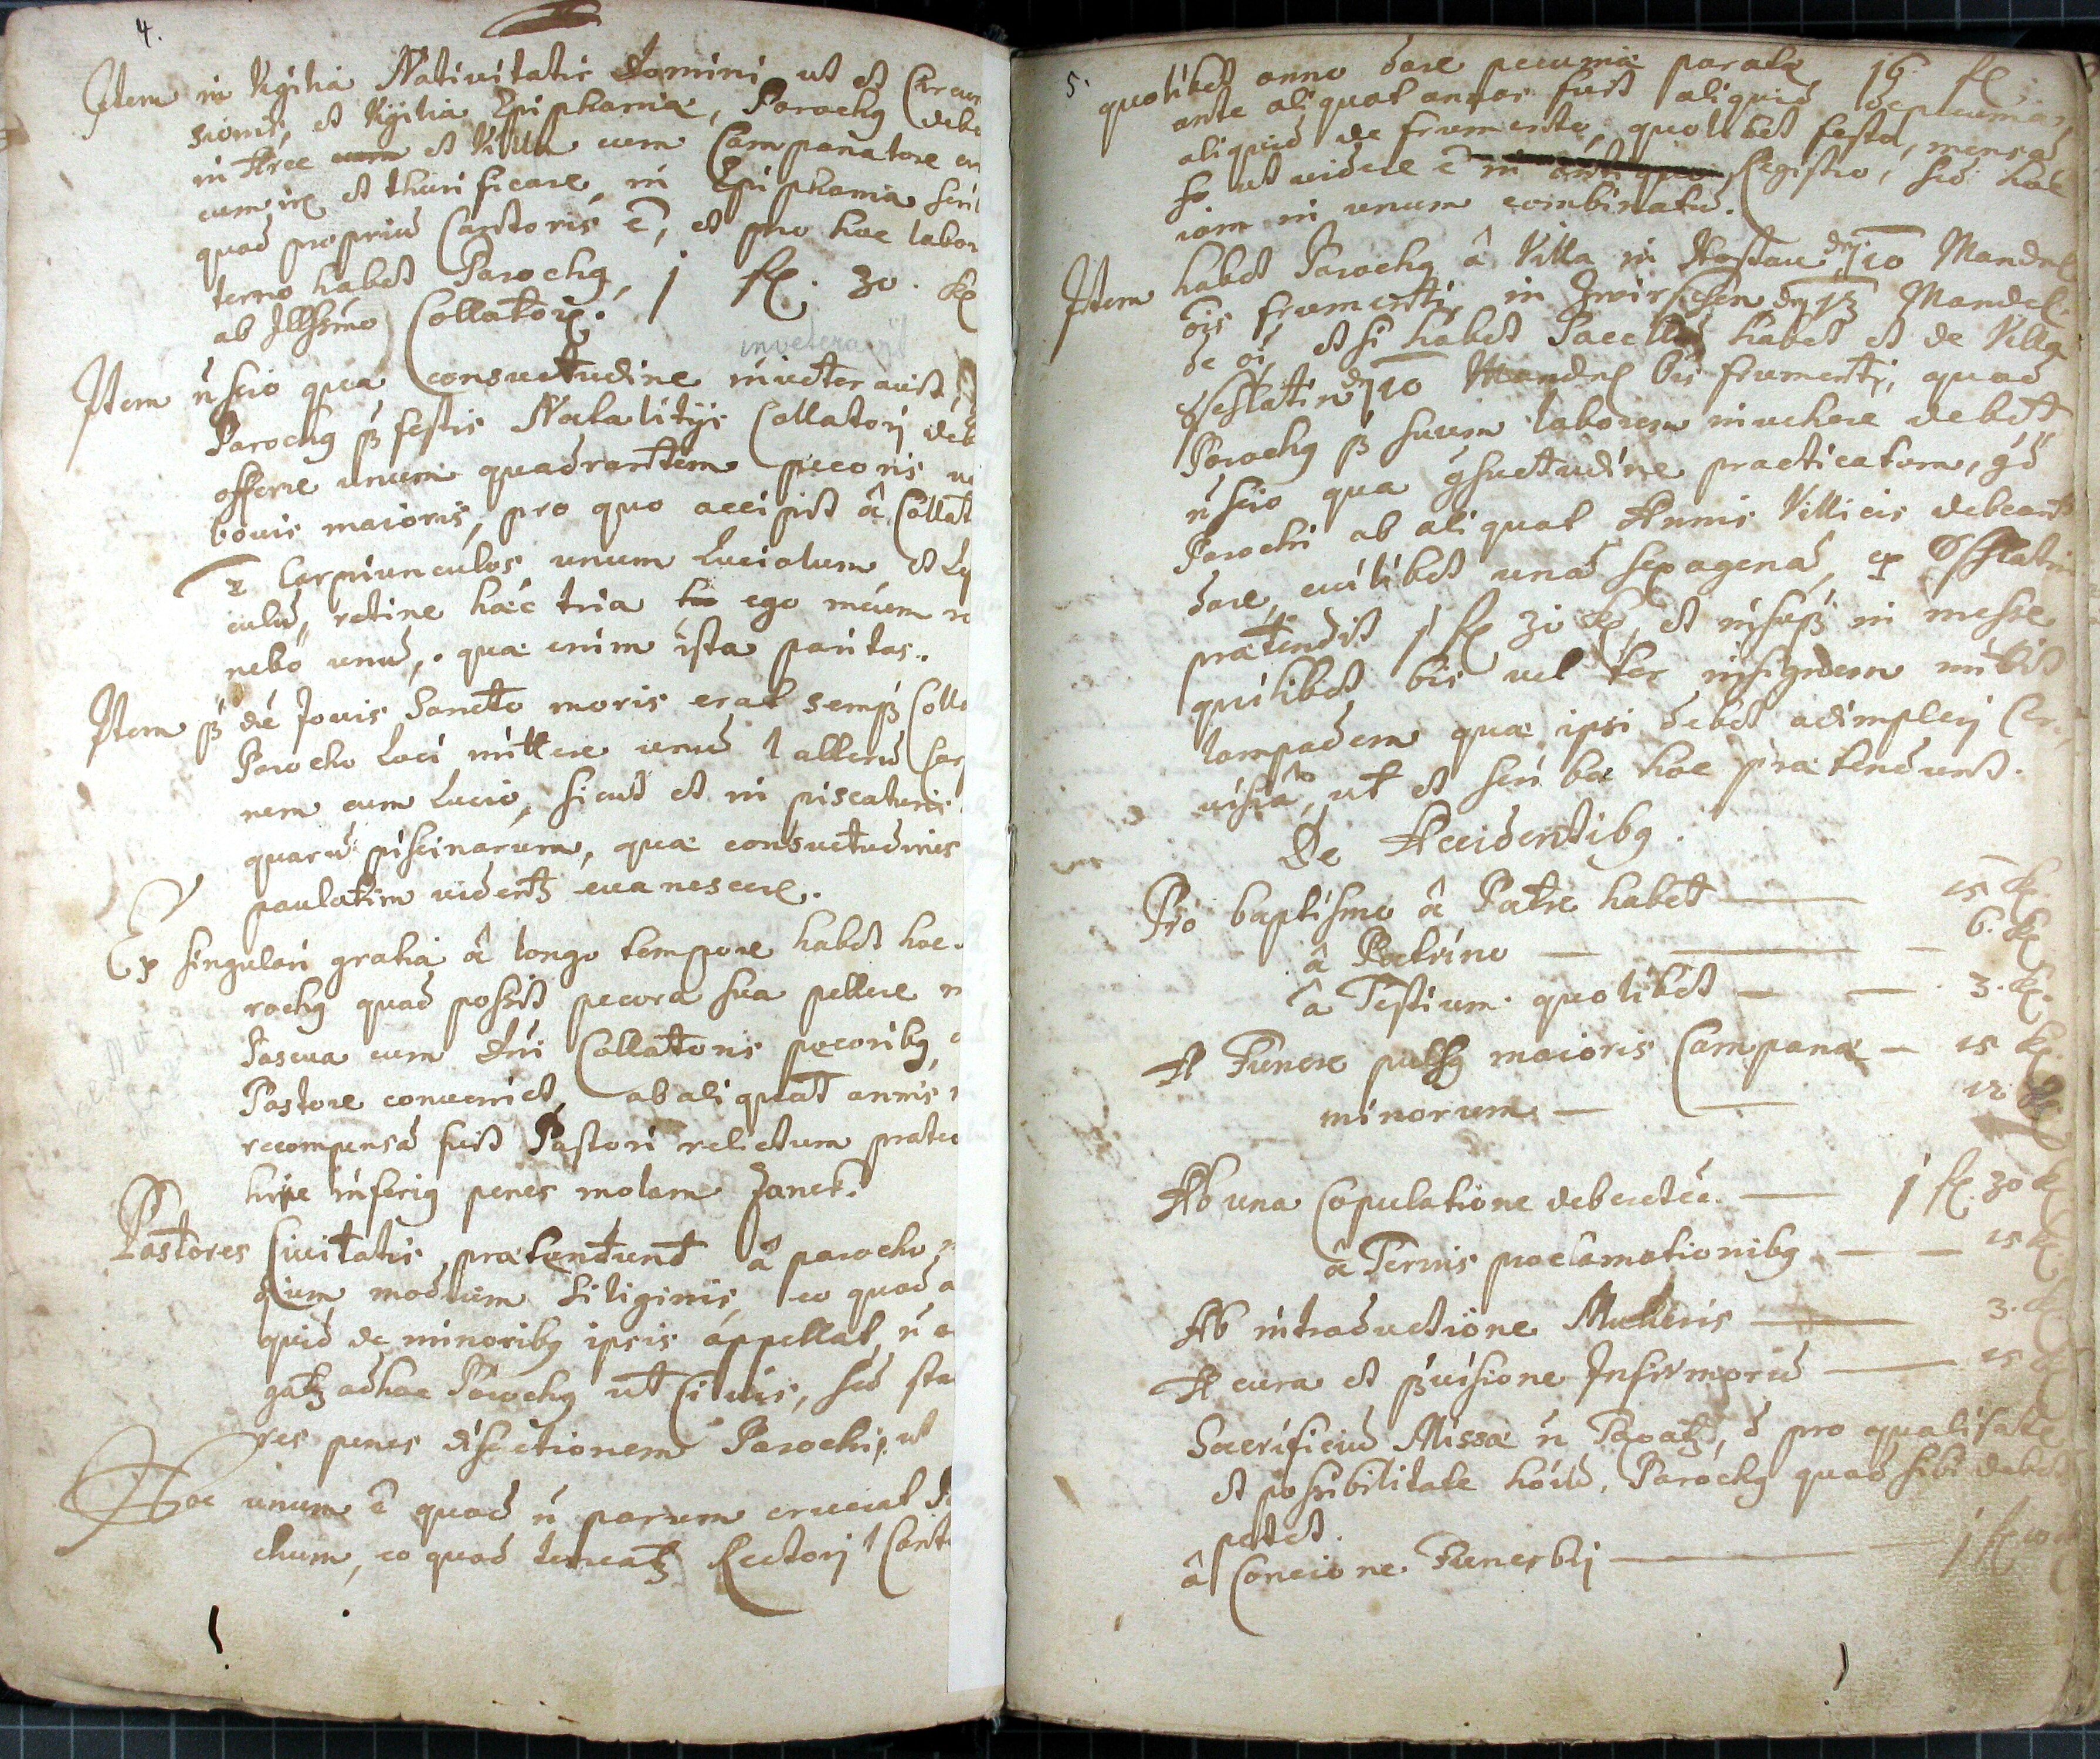 4.
Item in Vigilia Nativitatis Domini ut et Circum
sionis, et Vigilia Epiphaniæ, Parochꝰ debe
in Arce et Villa cum Campanatore
cum ire et thurificare, in Epiphania
quod propriũ Cantoris ẽ, et pro hoc labor
terno habet Parochꝰ, 1 fl. 30. kr
ab Illssimo Collatore.
inveteravit
Item ñ scio qua consuetudine inveteravit
Parochꝰ festis Natalitijs Collatorj deb
offerre unum quadrantem pecoris
bovis maioris, pro quo accipit â Collat
2 Carpiunculos unum Luciolum et
culũ, retine hæc tria ego meum
nebo unũ, quæ enim ista paritas.
Item die Jovis Sancto moris erat semp Coll
Parocho Loci mittere unũ l alterũ Car
nem cum Lucio, sicut et in piscaturis
quarũ piscinarum, quæ consuetudines
paulatim videntꝫ evanescere.
Ex singulari gratia â longo tempore habet hoc
rochꝰ quod possit pecora sua pellere
Pascua cum Dni Collatoris pecoribꝰ,
Pastore conveniet, ab aliquot annis
recompensã fuit Pastori relictum prat
inferiꝰ penes molam Janek.
Pastores Civitatis prætendunt â parocho
dium modium siliginis, eo quod a
quid de minoribꝰ ipsis appellat, ñ
gatꝫ adhoc Parochꝰ ut Civis, sed sta
res penes discretionem Parochi, ut
Hoc unum ẽ quod ñ parum cruciat
chum, eo quod teneatꝫ Rectorj l Cant
5.
quolibet anno dare pecuniæ paratæ 16 fl.
ante aliquot annos fuit aliquid
aliquid de frumento, quolibet festo, mensã
so ut videre ẽ in antiquo Registro, sed hoc
iam in unum combinatũ.
Item habet Parochꝰ â Villa in Hostau 10 Mandel
ois frumenti, in Zwirschen 13 Mandel.
de oi, etsi habet Sacellũ habet et de Villa
10 Mandel ois frumenti, quod
Parochꝰ suum laborem invehere debet
ñ scio qua gsuetudine practicatum, qd
Parochi ab aliquot Annis Villicis debeant
dare, cuilibet unã sexagenã, ex
prætendit 1 fl 30 kr, et insup in messe
quilibet bis vel ter insignem mittit
lampadem quæ ipsi debet adimplerj Cer,
visia, ut et scribæ hoc prætendunt.
De Accidentibꝰ.
Pro baptismo â Patre habet — 15 kr
â Patrino — 6. kr
â Testium quolibet — 3. kr.
A Funere pulsꝰ maioris Campanæ — 15 kr
minorum — 12 kr
Ab una Copulatione — 1 fl. 30 kr
â Ternis proclamationibꝰ — 15 kr
Ab introductione Mulieris — 3. kr
A cura et provisione Infirmorũ — 15 kr
Sacrificiũ Missæ ñ Taxatꝫ, pro qualitate
et possibilitate Parochꝰ quod sibi debet
petet.
â Concione Funebrj — 1 fl